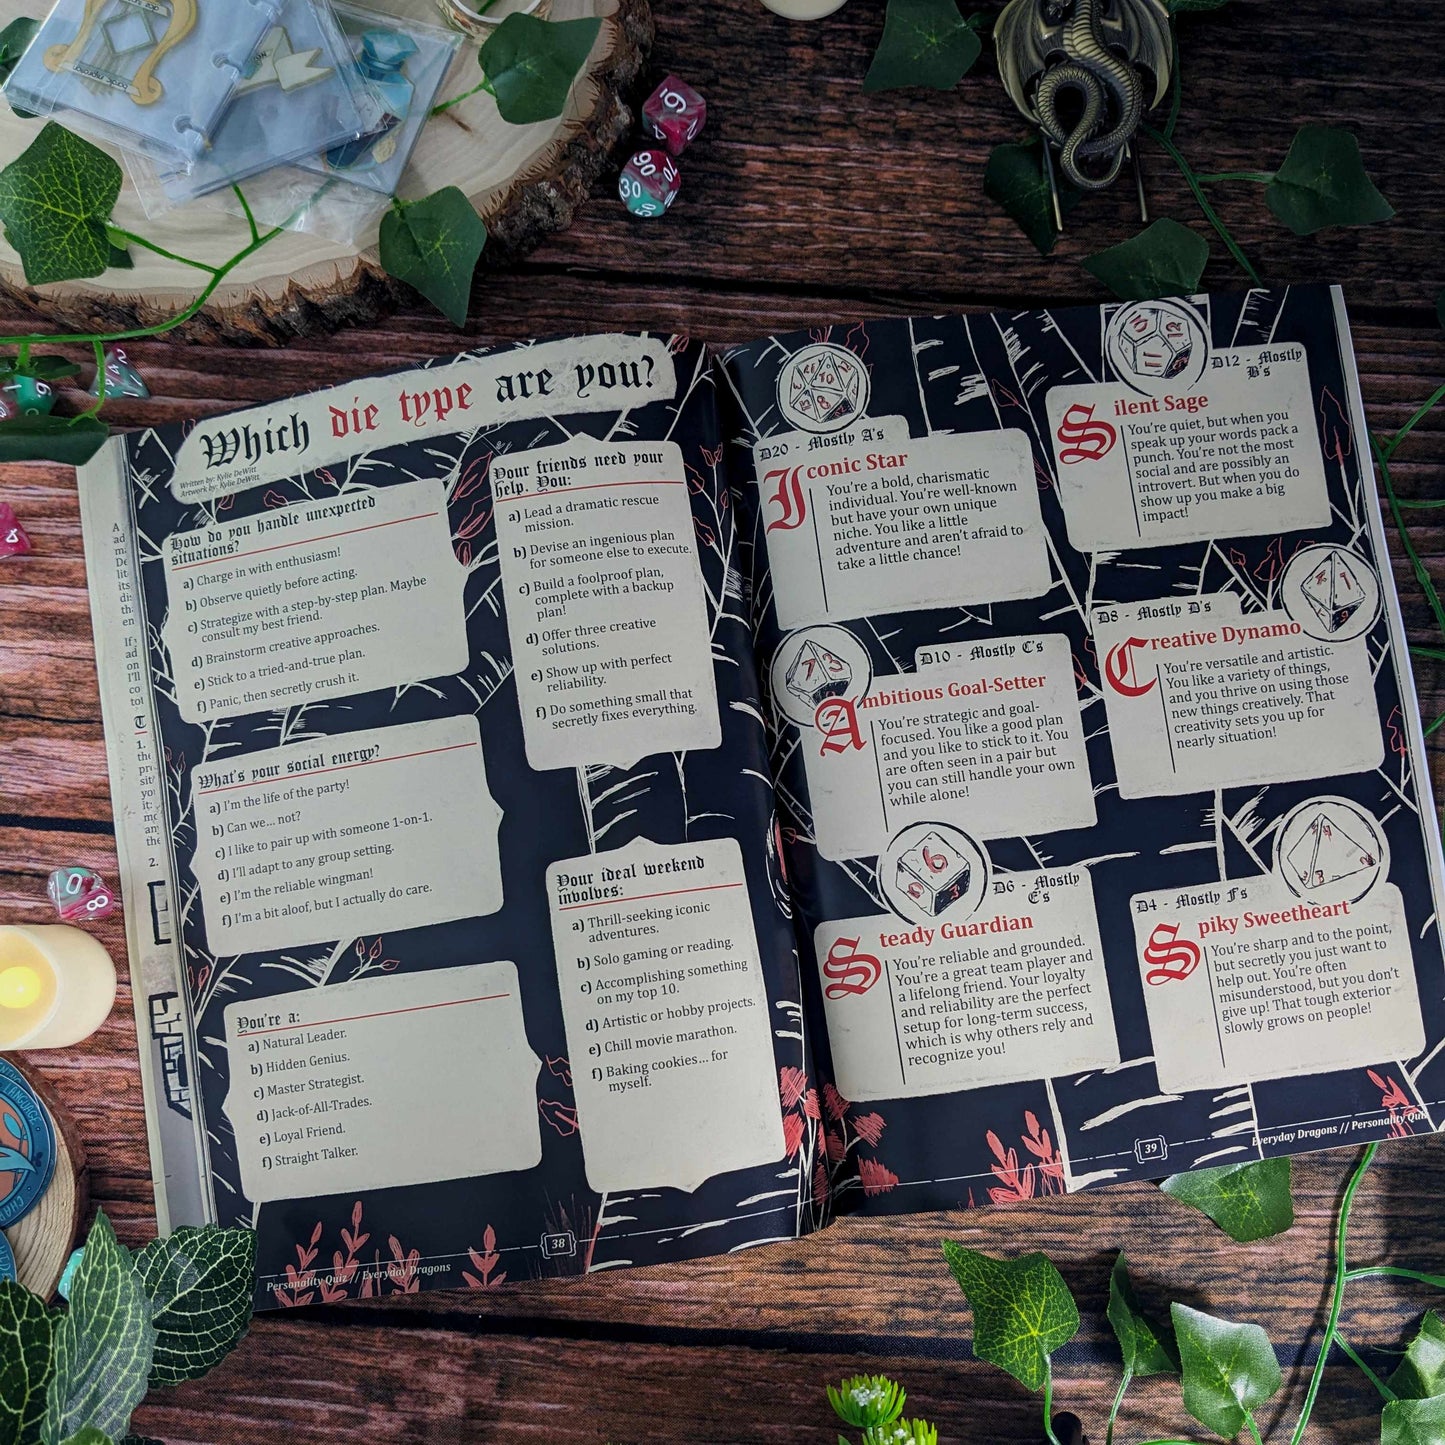 Which die type are you?
Written by: Kylie DeWitt
Artwork by: Kylie DeWitt
How do you handle unexpected
situations?
a) Charge in with enthusiasm!
b) Observe quietly before acting.
c) Strategize with a step-by-step plan. Maybe
consult my best friend.
d) Brainstorm creative approaches.
e) Stick to a tried-and-true plan.
f) Panic, then secretly crush it.
What's your social energy?
a) I'm the life of the party!
b) Can we... not?
c) I like to pair up with someone 1-on-1.
d) I'll adapt to any group setting.
e) I'm the reliable wingman!
f) I'm a bit aloof, but I actually do care.
You're a:
a) Natural Leader.
b) Hidden Genius.
c) Master Strategist.
d) Jack-of-All-Trades.
e) Loyal Friend.
f) Straight Talker.
Your friends need your
help. You:
a) Lead a dramatic rescue
mission.
b) Devise an ingenious plan
for someone else to execute.
c) Build a foolproof plan,
complete with a backup
plan!
d) Offer three creative
solutions.
e) Show up with perfect
reliability.
f) Do something small that
secretly fixes everything.
Your ideal weekend
involves:
a) Thrill-seeking iconic
adventures.
b) Solo gaming or reading.
c) Accomplishing something
on my top 10.
d) Artistic or hobby projects.
e) Chill movie marathon.
f) Baking cookies... for
myself.
Personality Quiz // Everyday Dragons
38
D20 - Mostly A's
Iconic Star
You're a bold, charismatic
individual. You're well-known
but have your own unique
niche. You like a little
adventure and aren't afraid to
take a little chance!
D12 - Mostly
B's
Silent Sage
You're quiet, but when you
speak up your words pack a
punch. You're not the most
social and are possibly an
introvert. But when you do
show up you make a big
impact!
D10 - Mostly C's
Ambitious Goal-Setter
You're strategic and goal-
focused. You like a good plan
and you like to stick to it. You
are often seen in a pair but
you can still handle your own
while alone!
D8 - Mostly D's
Creative Dynamo
You're versatile and artistic.
You like a variety of things,
and you thrive on using those
new things creatively. That
creativity sets you up for
nearly situation!
D6 - Mostly
E's
Steady Guardian
You're reliable and grounded.
You're a great team player and
a lifelong friend. Your loyalty
and reliability are the perfect
setup for long-term success,
which is why others rely and
recognize you!
D4 - Mostly F's
Spiky Sweetheart
You're sharp and to the point,
but secretly you just want to
help out. You're often
misunderstood, but you don't
give up! That tough exterior
slowly grows on people!
39
Everyday Dragons // Personality Quiz